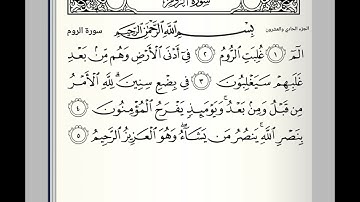 سورة الروم
الجزء الحادي والعشرون
سورة الروم
بِسْمِ اللَّهِ الرَّحْمَٰنِ الرَّحِيمِ
الٓمٓ ١ غُلِبَتِ الرُّومُ ٢ فِي أَدْنَى الْأَرْضِ وَهُم مِّنۢ بَعْدِ
غَلَبِهِمْ سَيَغْلِبُونَ ٣ فِي بِضْعِ سِنِينَ ۗ لِلَّهِ الْأَمْرُ
مِن قَبْلُ وَمِنۢ بَعْدُ ۚ وَيَوْمَئِذٍ يَفْرَحُ الْمُؤْمِنُونَ ٤
بِنَصْرِ اللَّهِ ۚ يَنصُرُ مَن يَشَاءُ ۖ وَهُوَ الْعَزِيزُ الرَّحِيمُ ٥